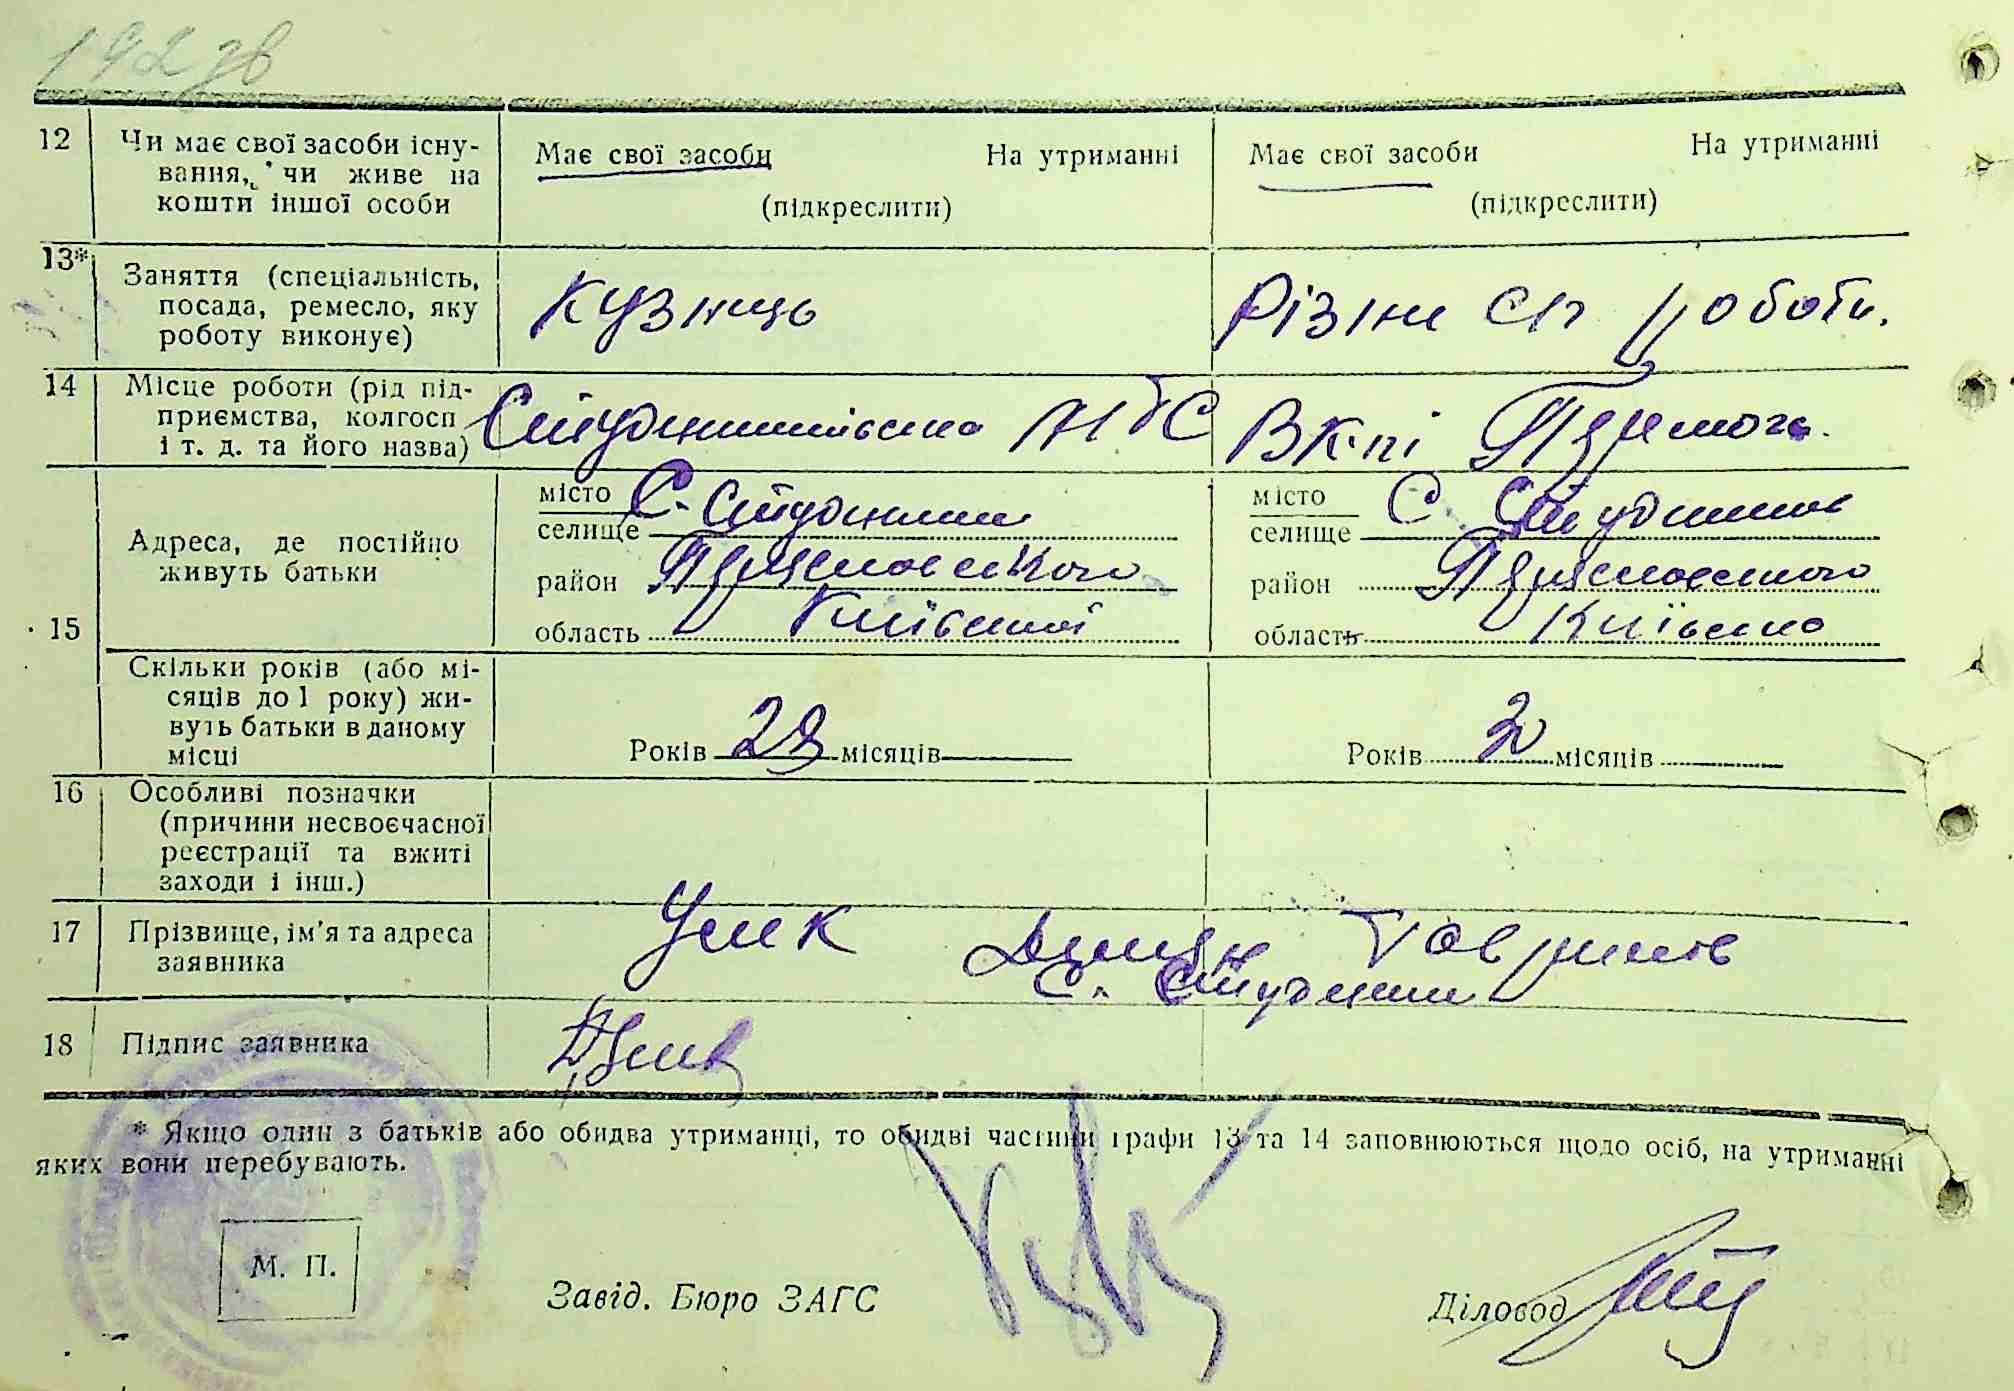 192 зв
12 Чи має свої засоби існу-
вання, чи живе на
кошти іншої особи
Має свої засоби На утриманні
(підкреслити)
Має свої засоби На утриманні
(підкреслити)
13* Заняття (спеціальність,
посада, ремесло, яку
роботу виконує)
Кузнець
Різни сп роботи.
14 Місце роботи (рід під-
приємства, колгосп
і т. д. та його назва)
МТС
В к-пі Перемога.
15 Адреса, де постійно
живуть батьки
місто
селище С. Студеники
район Переяславського
область Київської
місто
селище С. Студеники
район Переяславського
область Київсько
Скільки років (або мі-
сяців до 1 року) жи-
вуть батьки в даному
місці
Років 29 місяців
Років 2 місяців
16 Особливі позначки
(причини несвоєчасної
реєстрації та вжиті
заходи і інш.)
17 Прізвище, ім'я та адреса
заявника
Усик Демян Гаврилов
С. Студеники
18 Підпис заявника
* Якщо один з батьків або обидва утриманці, то обидві частини графи 13 та 14 заповнюються щодо осіб, на утриманні
яких вони перебувають.
М. П.
Завід. Бюро ЗАГС
Діловод